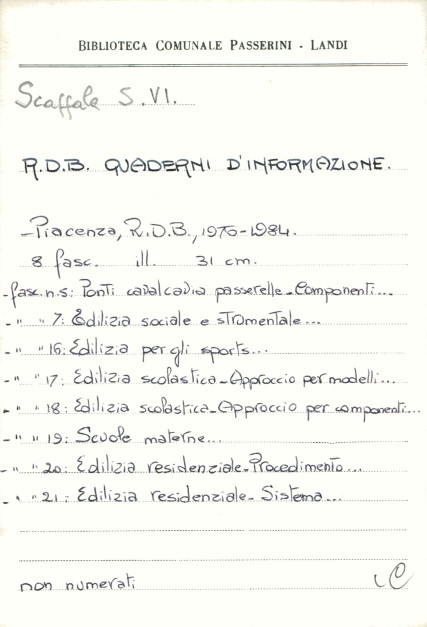 BIBLIOTECA COMUNALE PASSERINI - LANDI
Scaffale S.VI.
R.D.B. QUADERNI D'INFORMAZIONE.
-Piacenza, R.D.B., 1970-1984.
8 fasc. ill. 31 cm.
-fasc. n.5: Ponti cavalcavia passerelle-Componenti...
-" " 7: Edilizia sociale e strumentale...
-" " 16: Edilizia per gli sports...
-" " 17: Edilizia scolastica-Approccio per modelli...
-" " 18: Edilizia scolastica-Approccio per componenti...
-" " 19: Scuole materne...
-" " 20: Edilizia residenziale-Procedimento...
-" " 21: Edilizia residenziale-Sistema...
non numerati